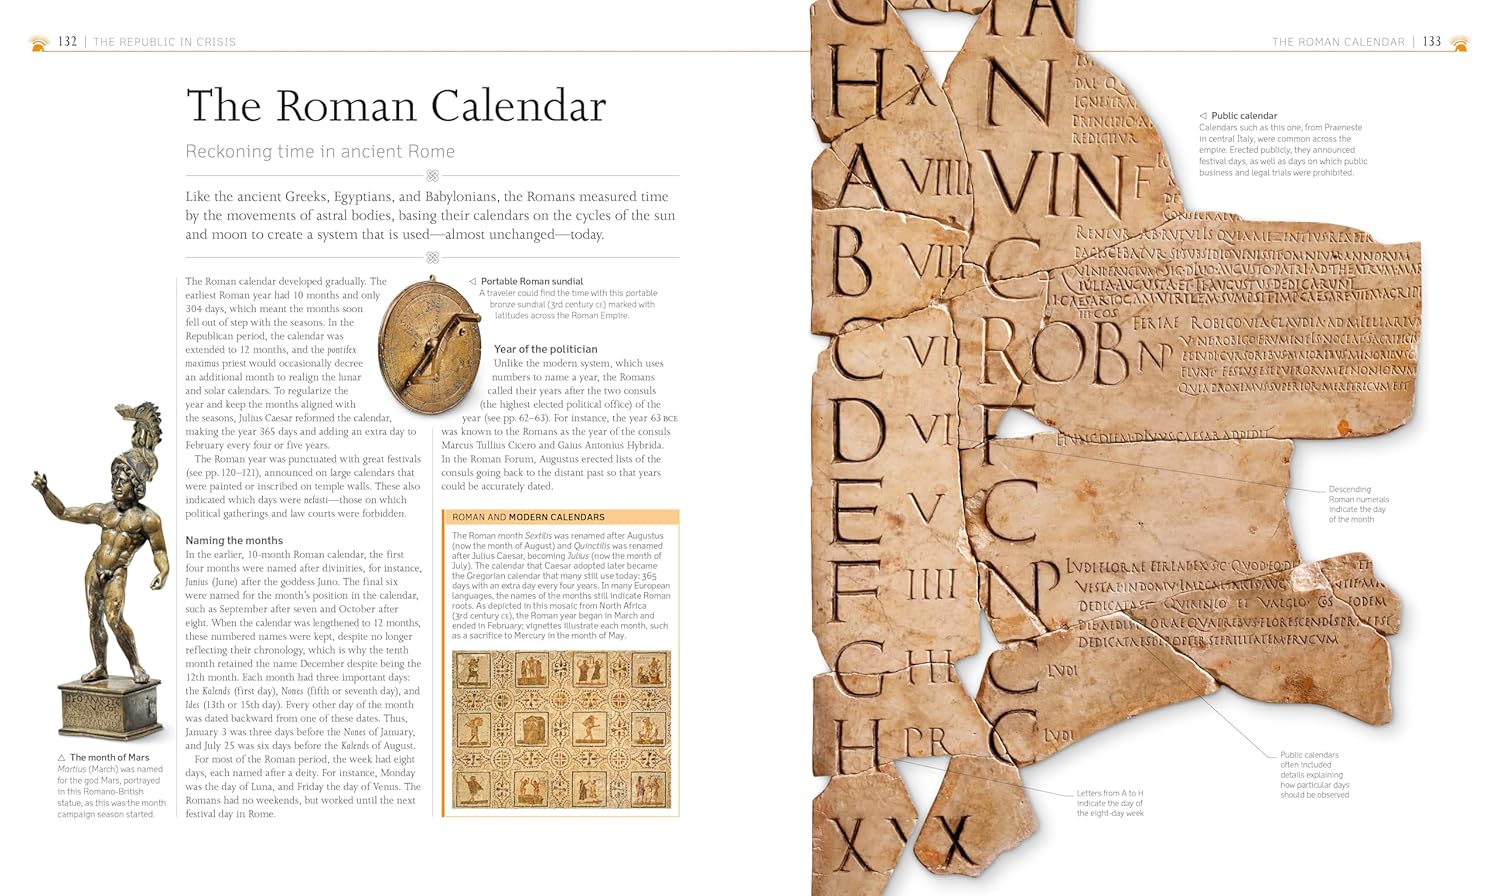 132 | THE REPUBLIC IN CRISIS
The Roman Calendar
Reckoning time in ancient Rome
Like the ancient Greeks, Egyptians, and Babylonians, the Romans measured time
by the movements of astral bodies, basing their calendars on the cycles of the sun
and moon to create a system that is used—almost unchanged—today.
The Roman calendar developed gradually. The
earliest Roman year had 10 months and only
304 days, which meant the months soon
fell out of step with the seasons. In the
Republican period, the calendar was
extended to 12 months, and the pontifex
maximus priest would occasionally decree
an additional month to realign the lunar
and solar calendars. To regularize the
year and keep the months aligned with
the seasons, Julius Caesar reformed the calendar,
making the year 365 days and adding an extra day to
February every four or five years.
The Roman year was punctuated with great festivals
(see pp. 120–121), announced on large calendars that
were painted or inscribed on temple walls. These also
indicated which days were nefasti—those on which
political gatherings and law courts were forbidden.
Naming the months
In the earlier, 10-month Roman calendar, the first
four months were named after divinities, for instance,
Junius (June) after the goddess Juno. The final six
were named for the month's position in the calendar,
such as September after seven and October after
eight. When the calendar was lengthened to 12 months,
these numbered names were kept, despite no longer
reflecting their chronology, which is why the tenth
month retained the name December despite being the
12th month. Each month had three important days:
the Kalends (first day), Nones (fifth or seventh day), and
Ides (13th or 15th day). Every other day of the month
was dated backward from one of these dates. Thus,
January 3 was three days before the Nones of January,
and July 25 was six days before the Kalends of August.
For most of the Roman period, the week had eight
days, each named after a deity. For instance, Monday
was the day of Luna, and Friday the day of Venus. The
Romans had no weekends, but worked until the next
festival day in Rome.
△ The month of Mars
Martius (March) was named
for the god Mars, portrayed
in this Romano-British
statue, as this was the month
campaign season started.
◁ Portable Roman sundial
A traveler could find the time with this portable
bronze sundial (3rd century CE) marked with
latitudes across the Roman Empire.
Year of the politician
Unlike the modern system, which uses
numbers to name a year, the Romans
called their years after the two consuls
(the highest elected political office) of the
year (see pp. 62–63). For instance, the year 63 BCE
was known to the Romans as the year of the consuls
Marcus Tullius Cicero and Gaius Antonius Hybrida.
In the Roman Forum, Augustus erected lists of the
consuls going back to the distant past so that years
could be accurately dated.
ROMAN AND MODERN CALENDARS
The Roman month Sextilis was renamed after Augustus
(now the month of August) and Quinctilis was renamed
after Julius Caesar, becoming Julius (now the month of
July). The calendar that Caesar adopted later became
the Gregorian calendar that many still use today: 365
days with an extra day every four years. In many European
languages, the names of the months still indicate Roman
roots. As depicted in this mosaic from North Africa
(3rd century CE), the Roman year began in March and
ended in February; vignettes illustrate each month, such
as a sacrifice to Mercury in the month of May.
THE ROMAN CALENDAR | 133
◁ Public calendar
Calendars such as this one, from Praeneste
in central Italy, were common across the
empire. Erected publicly, they announced
festival days, as well as days on which public
business and legal trials were prohibited.
H X N
A VIIII VIN F
B VIII C
C VII ROB NP
FERIAE ROBIGO
D VI F
E V C
F IIII NP
G III C LVDI
H PR C LVDI
XXX
Descending
Roman numerals
indicate the day
of the month
Public calendars
often included
details explaining
how particular days
should be observed
Letters from A to H
indicate the day of
the eight-day week